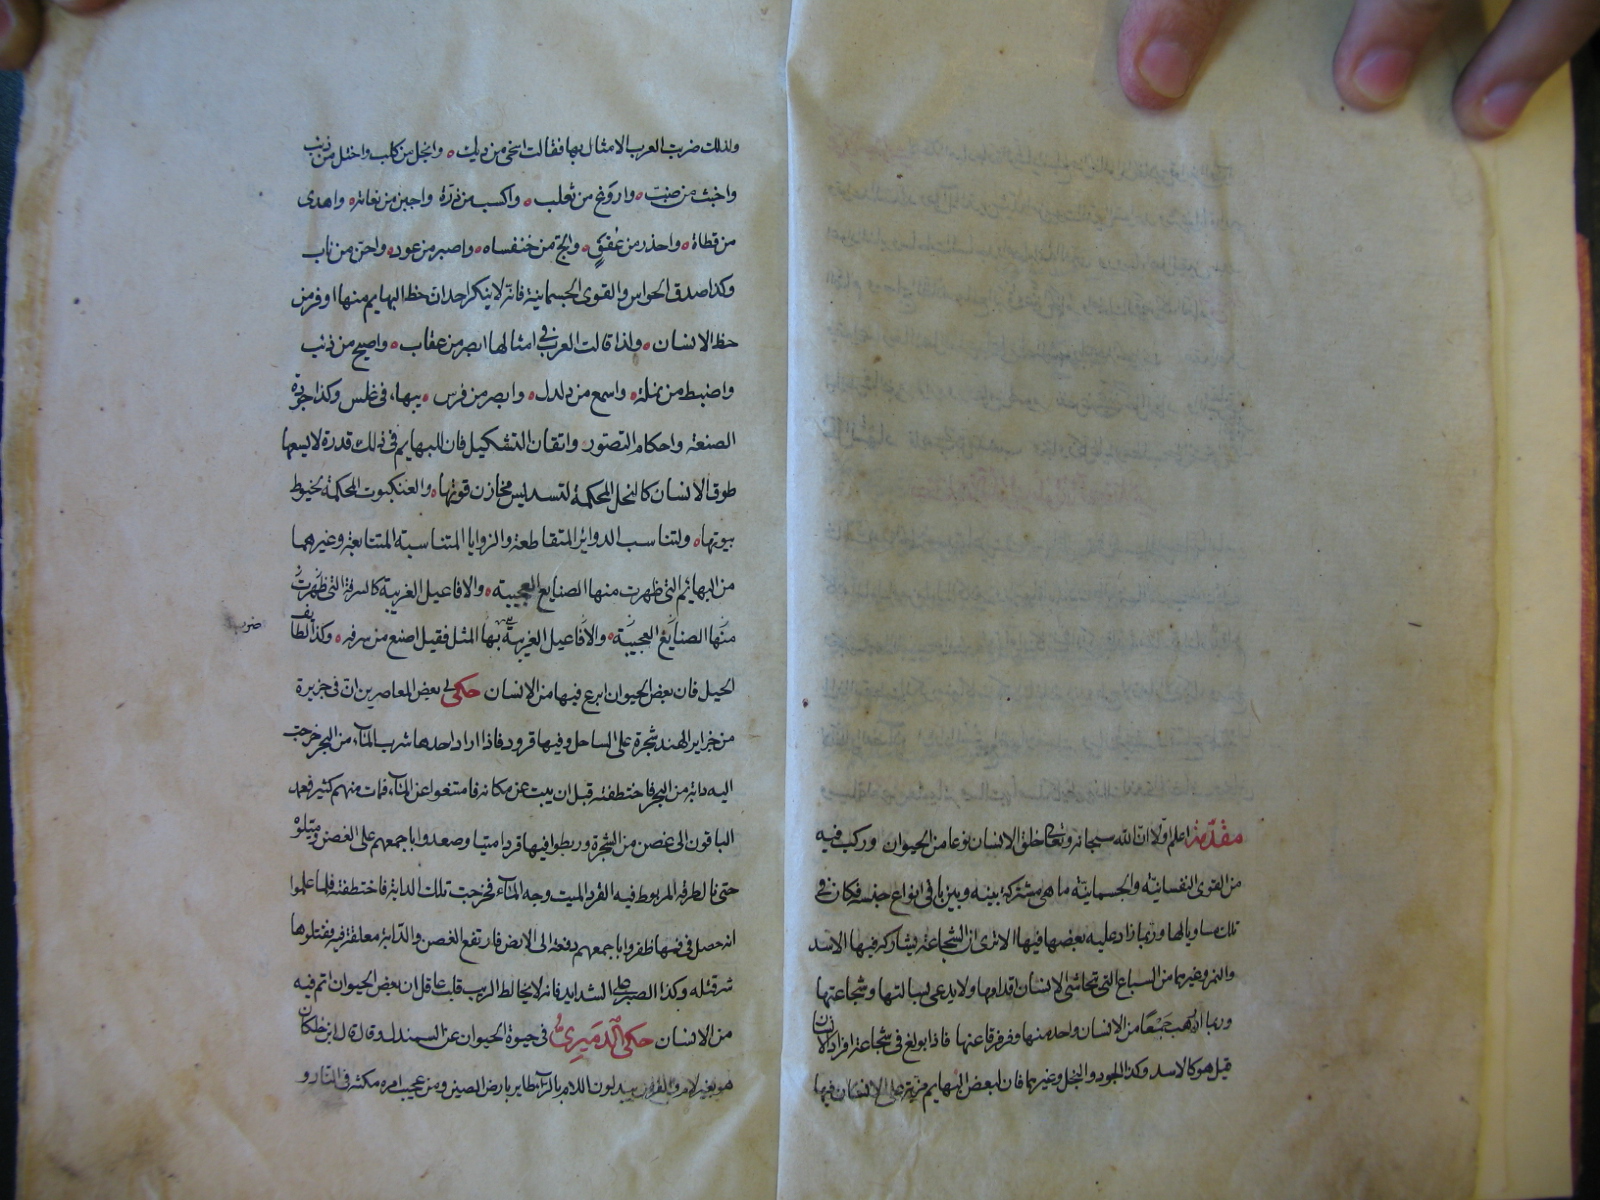 مقدمة اعلم اولا ان الله سبحانه وتعالى خلق الانسان نوعا من الحيوان وركب فيه
من القوى النفسانية والجسمانية ما هي مشتركة بينه وبين باقي انواع جنسه فكان في
تلك مساويا لها وربما زاد عليه بعضها فيها الا ترى ان الشجاعة يشاركه فيها الاسد
والنمر وغيرهما من السباع التي تحاشى الانسان اقدامها ولا يدعي بسالتها وشجاعتها
وربما ارهب جمعا من الانسان واحد منها وفر فرقا عنها فاذا بولغ في شجاعة افراد الانسان
قيل هو كالاسد وكذا الجود والبخل وغيرهما فان لبعض البهايم مزية على الانسان فيها
ولذلك ضرب العرب الامثال بها فقالت اسخى من ديك وابخل من كلب واختل من ذئب
واخبث من ضب واروغ من ثعلب واكسب من ذرة واجبن من نعامة واهدى
من قطاة واحذر من عقعق والج من خنفساه واصبر من عود واحن من ناب
وكذا صدق الحواس والقوى الجسمانية فانه لا ينكر احد ان حظ البهايم منها اوفر من
حظ الانسان ولذا قالت العرب في امثالها ابصر من عقاب واصبح من ذئب
واضبط من نملة واسمع من دلدل وابصر من فرس بيهماء في غلس وكذا جودة
الصنعة واحكام التصور واتقان التشكيل فان للبهايم في ذلك قدرة لا يسعها
طوق الانسان كالنحل المحكمة لتسديس مخازن قوتها والعنكبوت المحكمة لخيوط
بيوتها ولتناسب الدواير المتقاطعة والزوايا المتناسبة المتتابعة وغيرهما
من البهايم التي ظهرت منها الصنايع العجيبة والافاعيل الغريبة كالسرفة التي ظهرت
منها الصنايع العجيبة والافاعيل الغريبة بها المثل فقيل اصنع من سرفه وكذا لطايف
ضرب
الحيل فان بعض الحيوان ابرع فيها من الانسان حكى لي بعض المعاصرين ان في جزيرة
من جزاير الهند شجرة على الساحل وفيها قرود فاذا اراد احدها شرب الماء من البحر خرجت
اليه دابة من البحر فاختطفته قبل ان يبت عن مكانه فامتنعوا عن الماء فمات منهم كثير فعمد
الباقون الى غصن من الشجرة وربطوا فيها قردا ميتا وصعدوا باجمعهم على الغصن
حتى نال طرفه المربوط فيه القرد الميت وجه الماء فخرجت تلك الدابة فاختطفته فلما علموا
انه حصل في فمها ظفروا باجمعهم دفعة الى الارض فارتفع الغصن والدابة معلقة فيه فقتلوها
شر قتله وكذا الصبر على الشدايد فانه لا يخالط الريب قلب عاقل ان بعض الحيوان اتم فيه
من الانسان حكى الدميري في حيوة الحيوان عن السمندل وقال قال ابن خلكان
هو بغير لام باللام بالراء طاير بارض الصين ومن عجيب امره مكثه في النار و